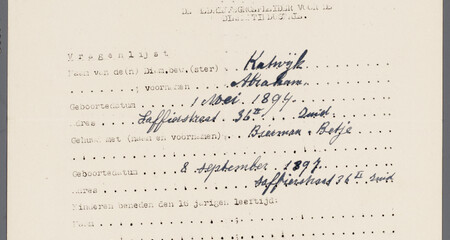 Vragenlijst
Naam van de(n) Dien.bew.(ster) Katwijk
; voornamen Abraham
Geboortedatum 1 Mei 1894
Adres Saffierstraat 36 II Zuid.
Gehuwd met (naam en voornamen) Beesman Betje
Geboortedatum 8 September 1897
Adres Saffierstraat 36 II Zuid.
Kinderen beneden den 16 jarigen leertijd:
Naam